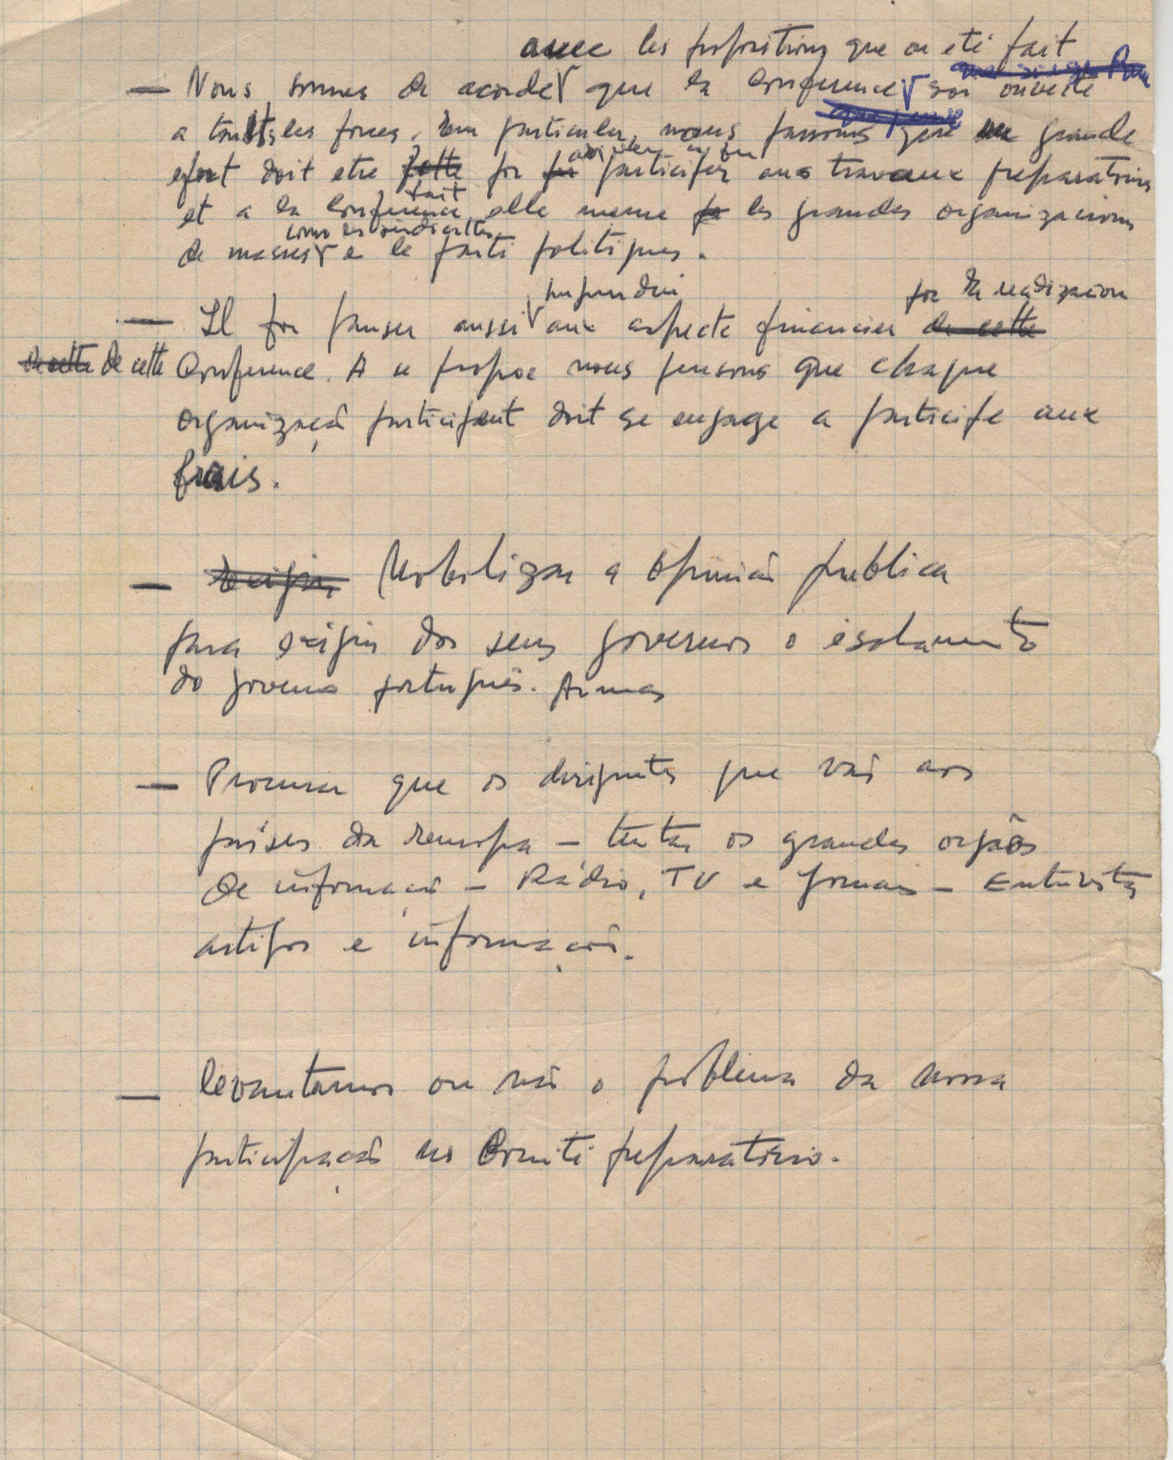 avec les propositions que on eté fait
— Nous sommes de acorde que la Conference soi ouverte
a tout les forces. En particuler, nous pensons que un grande
efort doit etre fait for participer aux travaux preparatoires
et a la Conference elle meme les grandes organizacions
de masses como les sindicattes e le parti politiques.
for da realizacion
— Il for panser aussi aux aspecte financier
de cette Conference. A ce propoe nous pensons que chaque
organizaçã participant doit se engage a participe aux
frais.
— Mobilizar a Opinião publica
para exigir dos seus governos o isolamento
do governo português. Armas
— Procurar que os dirigentes que vão aos
países da reuropa — tentar os grandes orgãos
de informaçã — Rádio, TV e jornais — Entrevistas
artigos e informação.
— levantamos ou não o problema da nossa
participação no Comité preparatório.